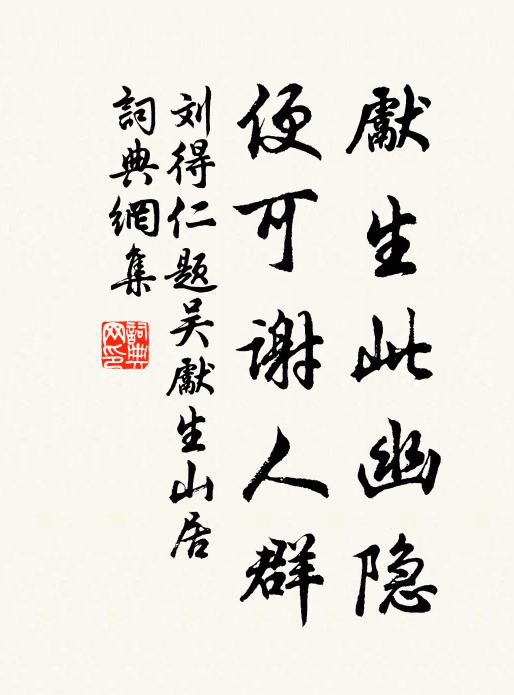 獻生此幽隐
便可谢人群
刘得仁题吴獻生山居
詞典網集
詞典网印